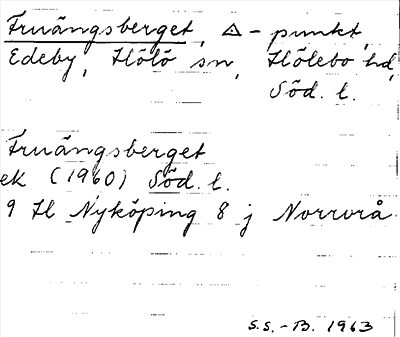 Fruängsberget, △-punkt,
Edeby, Hölö sn, Hölebo hd,
Söd. l.
Fruängsberget
ek (1960) Söd. l.
9 H Nyköping 8 j Norrvrå
S.S.-B. 1963